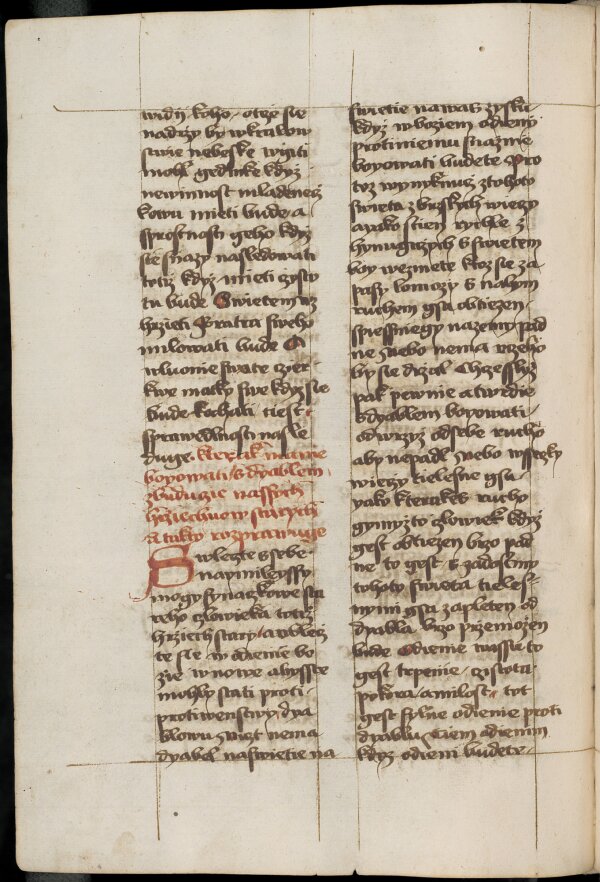 widij koho oteze sie
nadrzy by wkralow
stwie nebeske wyiti
mohl gedinke kdyz
newinnost mladenecz
kowu mieti bude a
sprostnosti geho kdyz
sie snazy nasledowati
totiz kdyz mieti czysto
tu bude Swietem uz
hrzieti Bratra sweho
milowati bude A
wluonie swate czier
kwe matky swe kdyz sie
bude kochati tiest
sprawedlnosti nasle
duge kterak mame
boyowati s dyablem
zbuducie nassych
hrziechuow starych
A takto rozprawuge
Swlecte s sebe
naymileyssy
mogy synaczkowe sta
reho czlowieka totiz
hrziech stary a oblecz
te sie w odienie bo
zie w nowe abysste
mohly stati proti
protiwenstwy dya
blowu zwiezt nema
dyabel naswietie na
swietie nawas zysku
kdyz w boziem odieny
protiniemu snaznie
boyowati budete Pro
toz wymknuc ztohoto
swieta zburzlywych wiezy
a yako stien rychle z
hynugiczych s swietem
boy wezmete ktoz sie za
pasy lomczy s nahym
ruchem gsa obtiezen
spiessniegy nazemy pad
ne Nebo nema zczeho
by sie drzal Chczessliz
pak pewnie a twrdie
s dyablem boyowati
odwrzyz odsebe rucho
aby nepadl Nebo wssecky
wiezy tielesne gsu
yako kterakes rucho
gymyzto czlowiek kdyz
gest obtiezen brzo pad
ne to gest s zadostmy
tohoto swieta tieles
nymi gsa zapleten od
dyabla brzo przemozen
bude Odienie wassie to
gest trpenie czistota
pykora a milost tot
gest sylne odienie proti
dyablu Tiem odienim
kdyz odieni budete